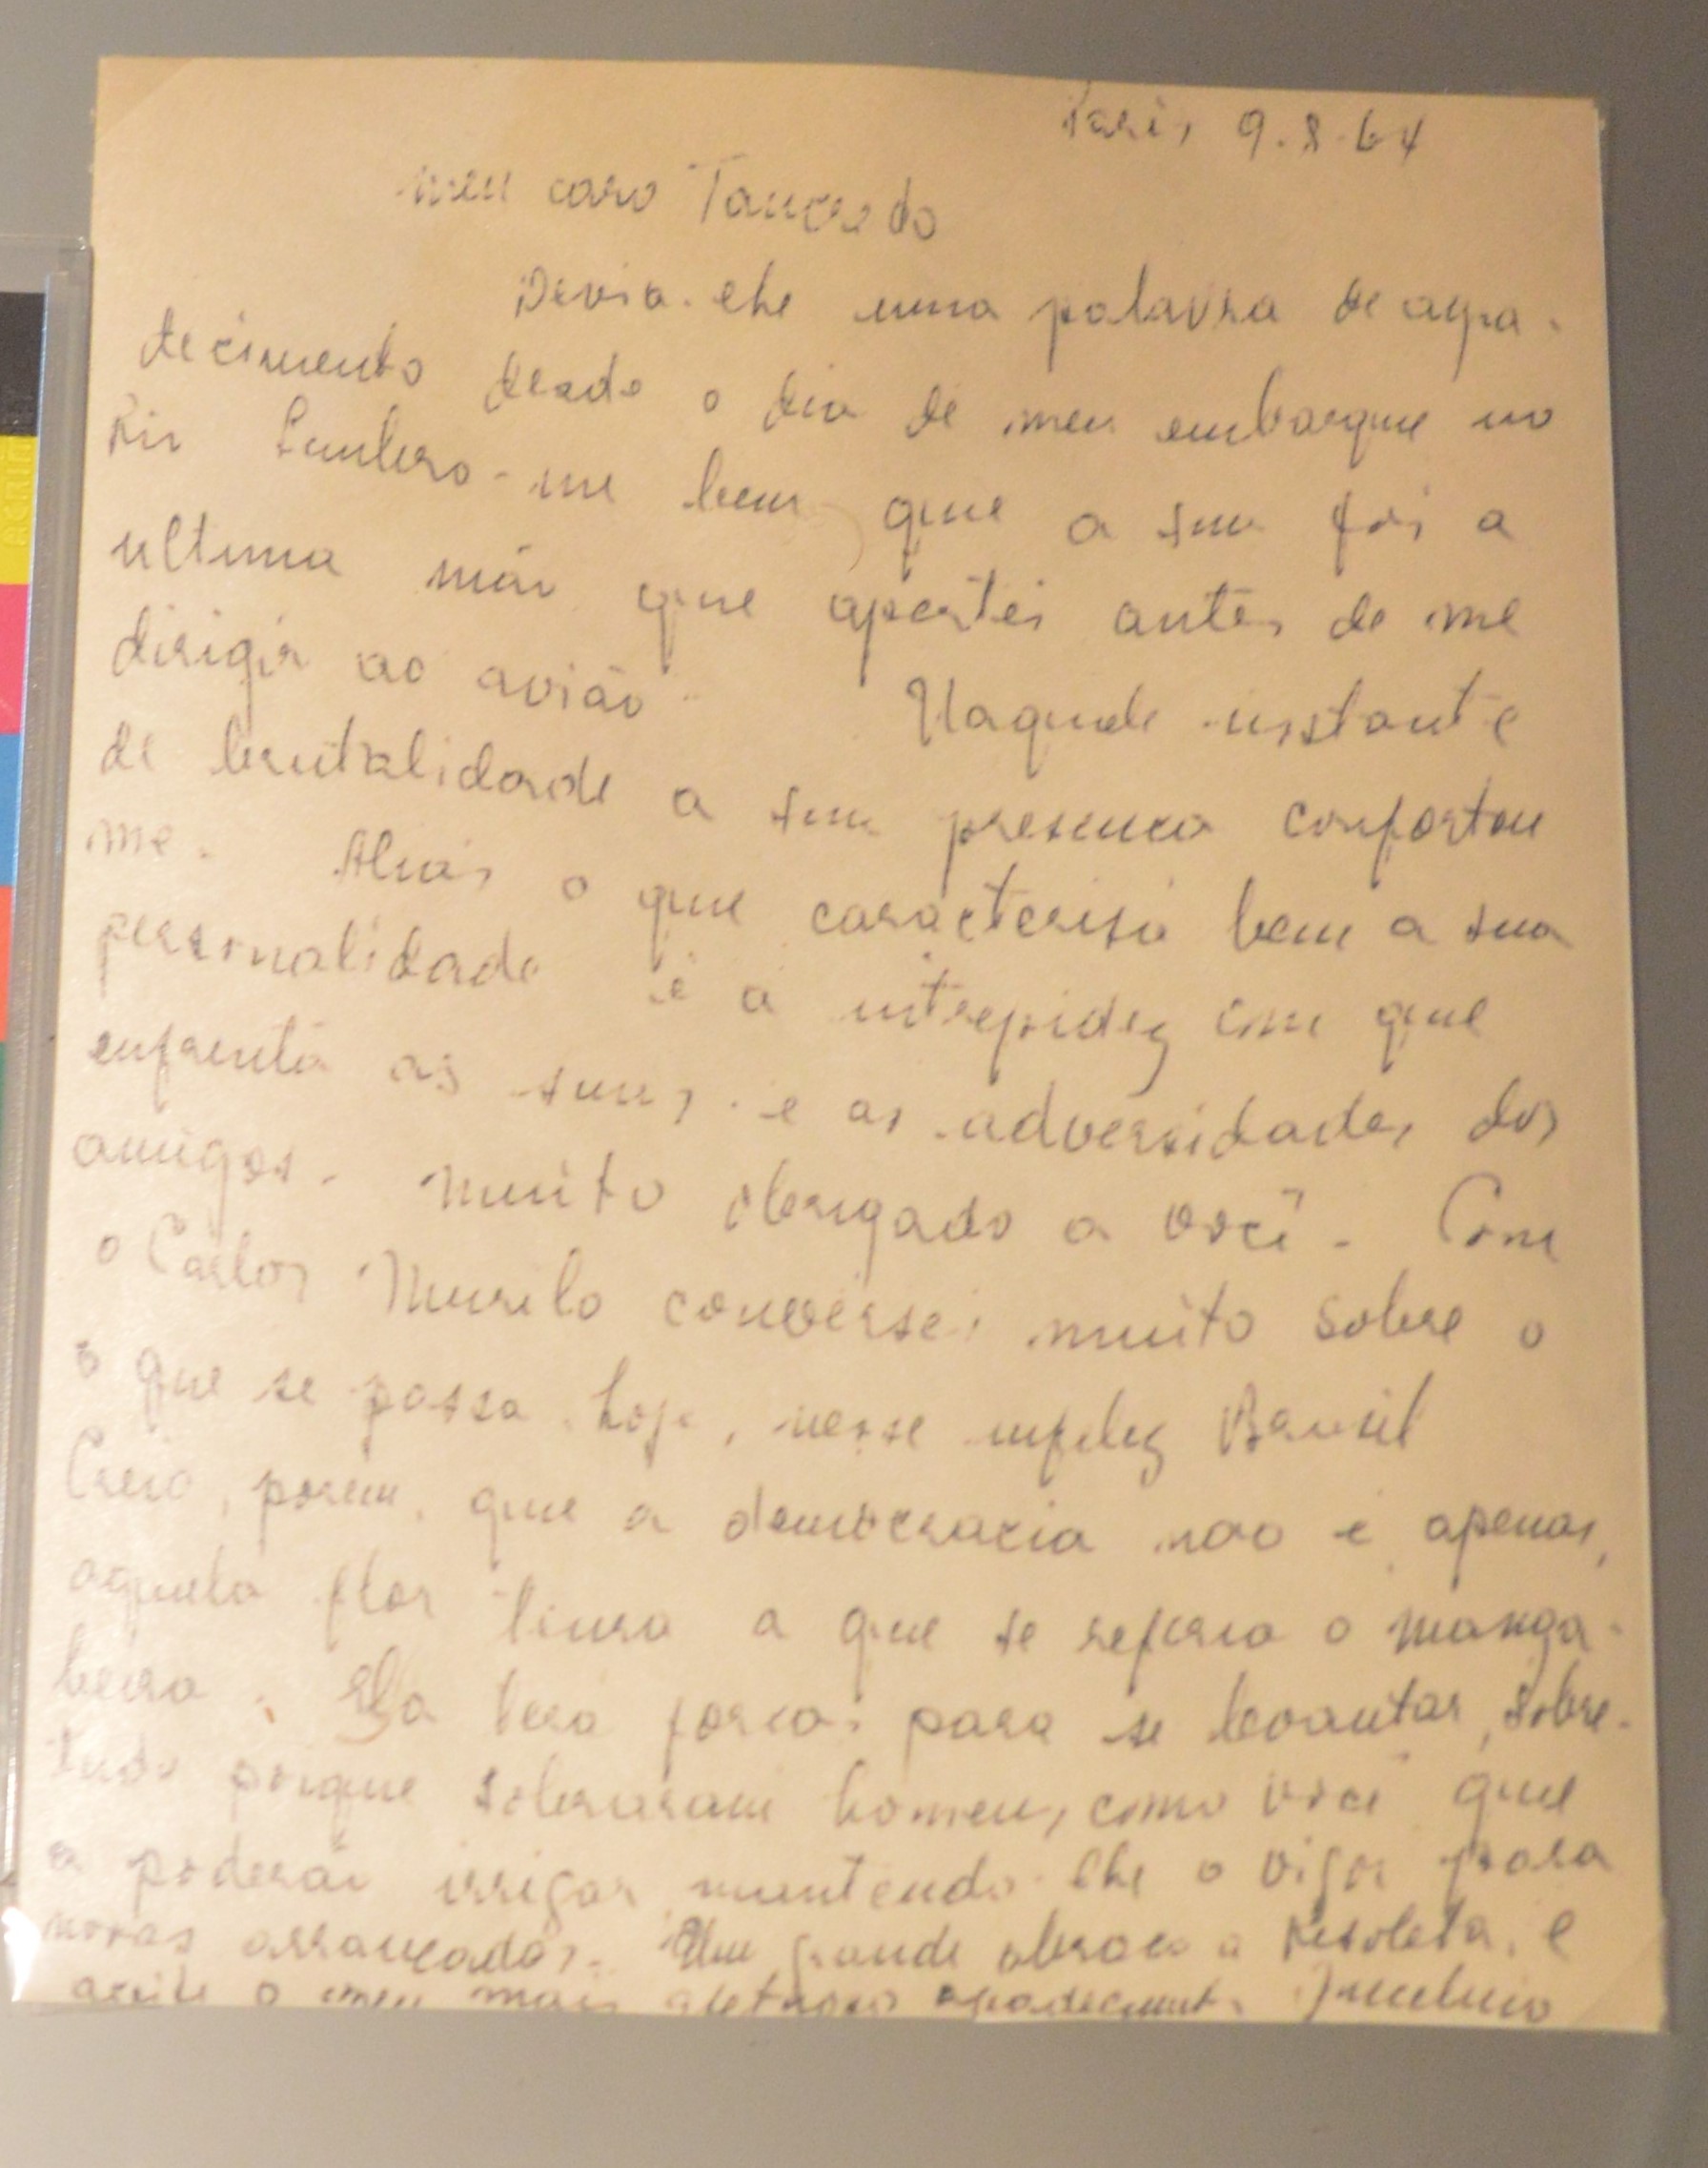 Paris, 9.8.64
meu caro Tancredo
Devia-lhe uma palavra de agra-
decimento desde o dia de meu embarque no
Rio Lembro-me bem que a sua foi a
ultima mão que apertei antes de me
dirigir ao avião. Naquele instante
de brutalidade a sua presença confortou
me. Aliás o que caracterisa bem a sua
personalidade é a intrepidez com que
enfrenta as suas e as adversidades dos
amigos. Muito obrigado a você. Com
o Carlos Murilo conversei muito sobre o
o que se passa hoje, nesse infeliz Brasil
Creio, porem, que a democracia não é apenas,
aquela flor tenra a que se referia o manga-
beira. Ela terá forças para se levantar, sobre-
tudo porque sobraram homens, como você que
a poderão irrigar mantendo-lhe o vigor para
novas arrancadas. Um grande abraço a Risoleta, e
aceite o meu mais afetuoso agradecimento. Juscelino